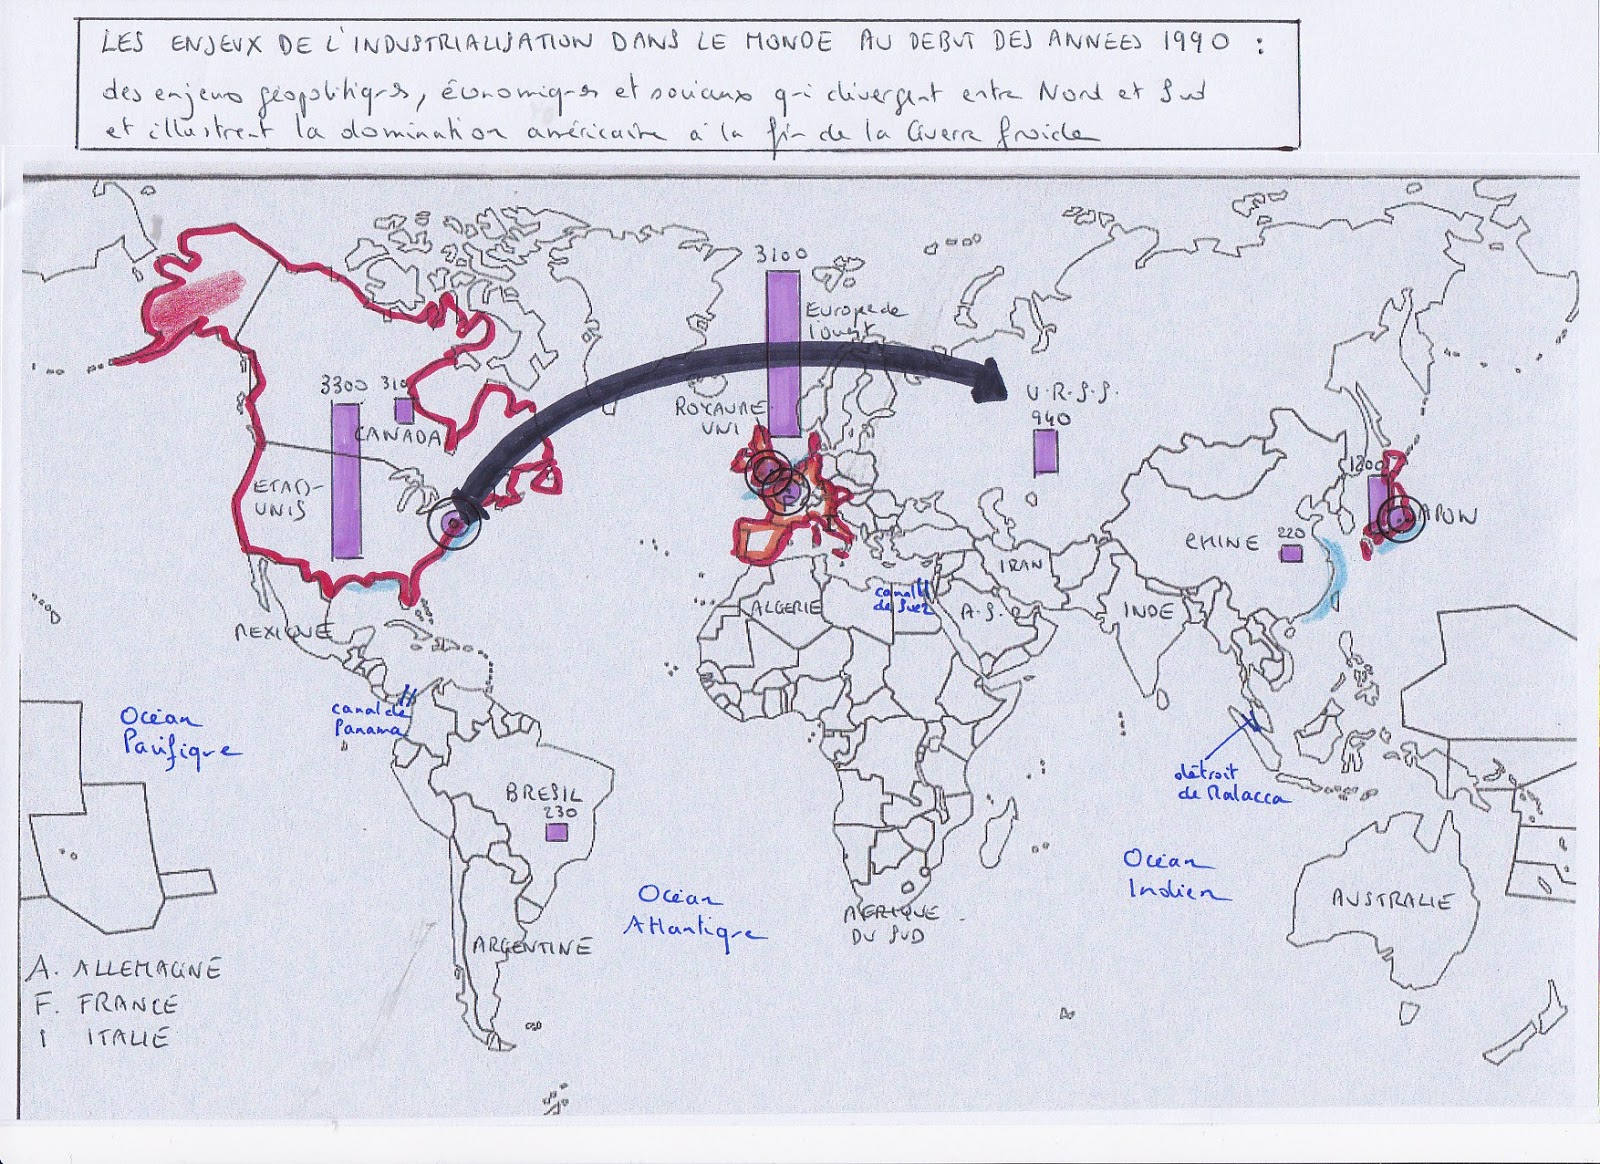 LES ENJEUX DE L'INDUSTRIALISATION DANS LE MONDE AU DEBUT DES ANNEES 1990 :
des enjeux géopolitiques, économiques et sociaux qui divergent entre Nord et Sud
et illustrent la domination américaine à la fin de la Guerre froide
3100
Europe de
l'ouest
3300
310
CANADA
ETATS-
UNIS
ROYAUME
UNI
U.R.S.S.
940
1200
JAPON
CHINE
220
F
I
IRAN
ALGERIE
canal
de Suez
A.S.
INDE
MEXIQUE
canal de
Panama
Océan
Pacifique
détroit
de Malacca
BRESIL
230
Océan
Indien
Océan
Atlantique
AUSTRALIE
AFRIQUE
DU SUD
ARGENTINE
A. ALLEMAGNE
F. FRANCE
I ITALIE